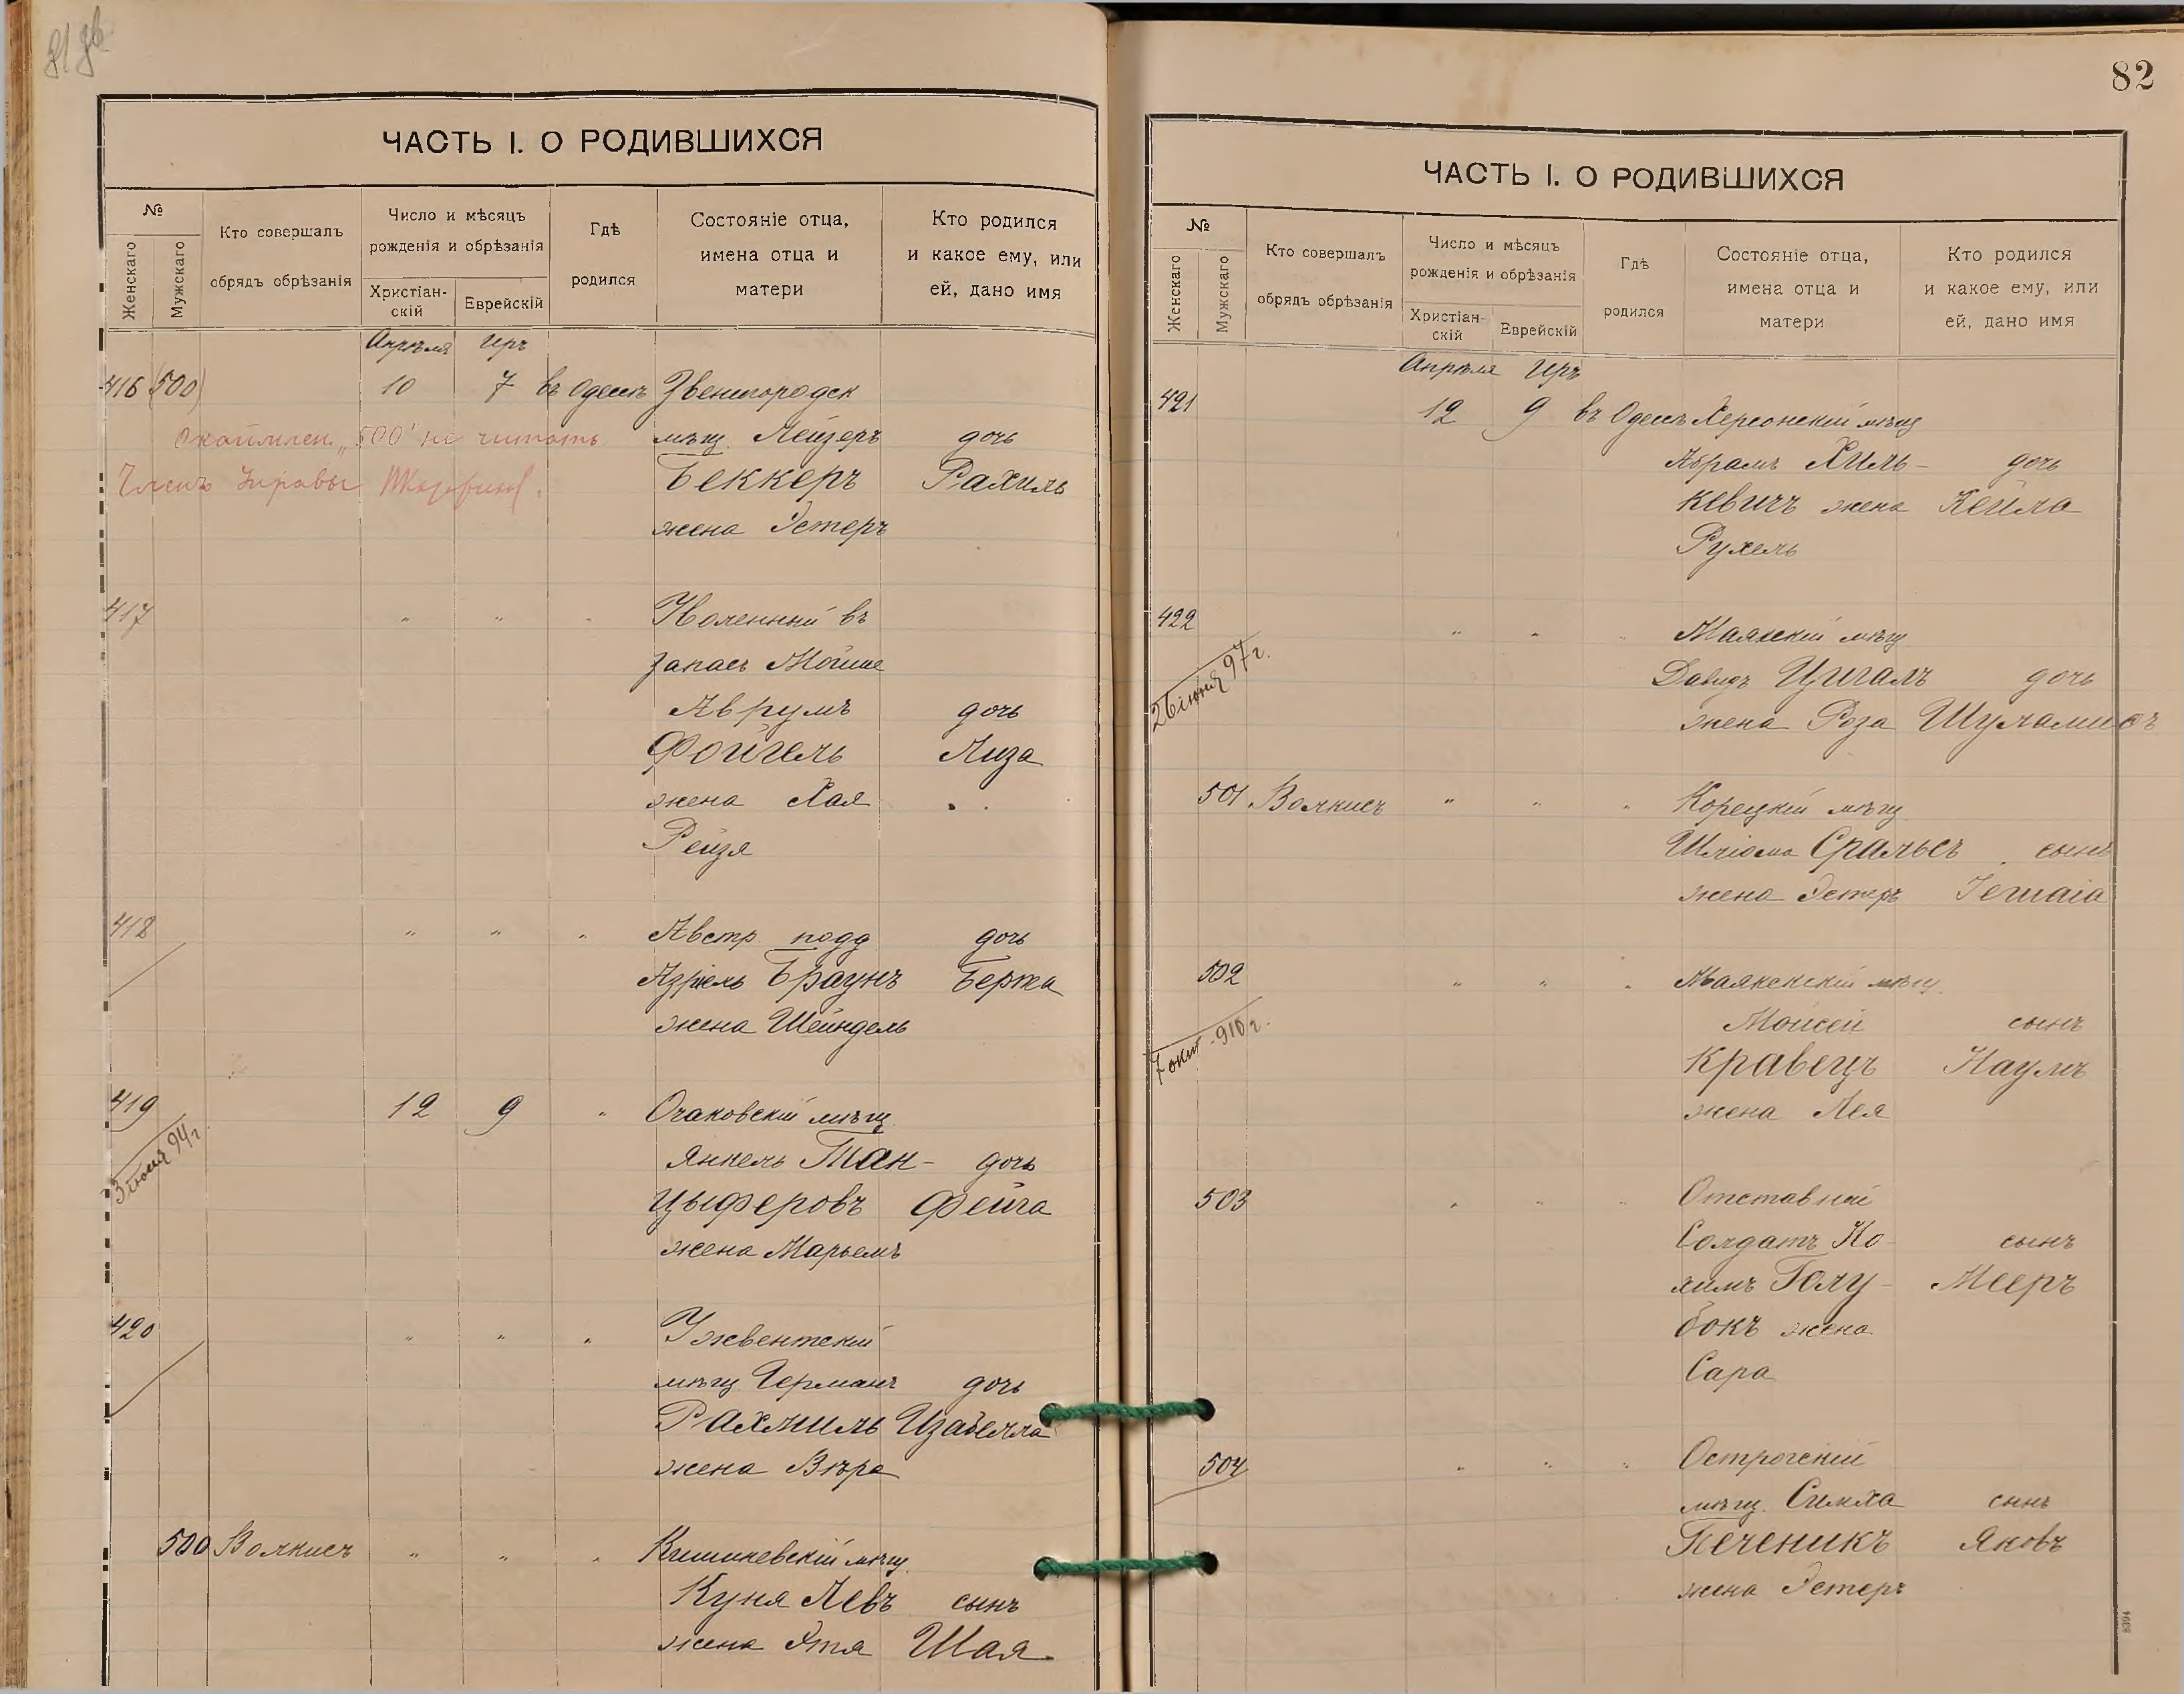 82
ЧАСТЬ I. О РОДИВШИХСЯ
№
Женскаго
Мужскаго
Кто совершалъ
обрядъ обрѣзанія
Число и мѣсяцъ
рожденія и обрѣзанія
Христіан-
скій
Еврейскій
Гдѣ
родился
Состояніе отца,
имена отца и
матери
Кто родился
и какое ему, или
ей, дано имя
Апрѣля Иръ
416 (500) 10 7 въ Одессѣ Звенигородск
мѣщ. Лейзеръ дочь
Беккеръ Рахиль
жена Эстеръ
окаймлен. „500" не читать
Членъ Управы
417 " " " Уволенный въ
запасъ Мойше
Аврумъ дочь
Фойгель Лиза
жена Хая
Рейзя
418 " " " Австр. подд дочь
Азріель Браунъ Берта
жена Шейндель
419 12 9 " Очаковскій мѣщ
3 іюля 94 г.
Янкель Тан- дочь
цыферовъ Фейга
жена Марьемъ
420 " " " Ужвентскій
мѣщ Германъ дочь
Рахмиль Изабелла
жена Вѣра
500 Волкисъ " " " Кишиневскій мѣщ.
Куня Левъ сынъ
жена Этя Шая
ЧАСТЬ I. О РОДИВШИХСЯ
№
Женскаго
Мужскаго
Кто совершалъ
обрядъ обрѣзанія
Число и мѣсяцъ
рожденія и обрѣзанія
Христіан-
скій
Еврейскій
Гдѣ
родился
Состояніе отца,
имена отца и
матери
Кто родился
и какое ему, или
ей, дано имя
Апрѣля Иръ
421 12 9 въ Одессѣ Херсонскій мѣщ
Абрамъ Хиль- дочь
кевичъ жена Кейла
Рухель
422 " " " Маякскій мѣщ
26 іюня 97 г.
Давидъ Цигалъ дочь
жена Роза Шуламисъ
501 Волкисъ " " " Корецкій мѣщ
Шліома Сральсъ сынъ
жена Эстеръ Іешаіа
502 " " " Маякскій мѣщ.
7 окт. 910 г.
Моисей сынъ
Кравецъ Наумъ
жена Лея
503 " " " Отставной
Солдатъ Но- сынъ
химъ Голу- Мееръ
бокъ жена
Сара
504 " " " Острогскій
мѣщ. Симха сынъ
Печеникъ Яковъ
жена Эстеръ
8394